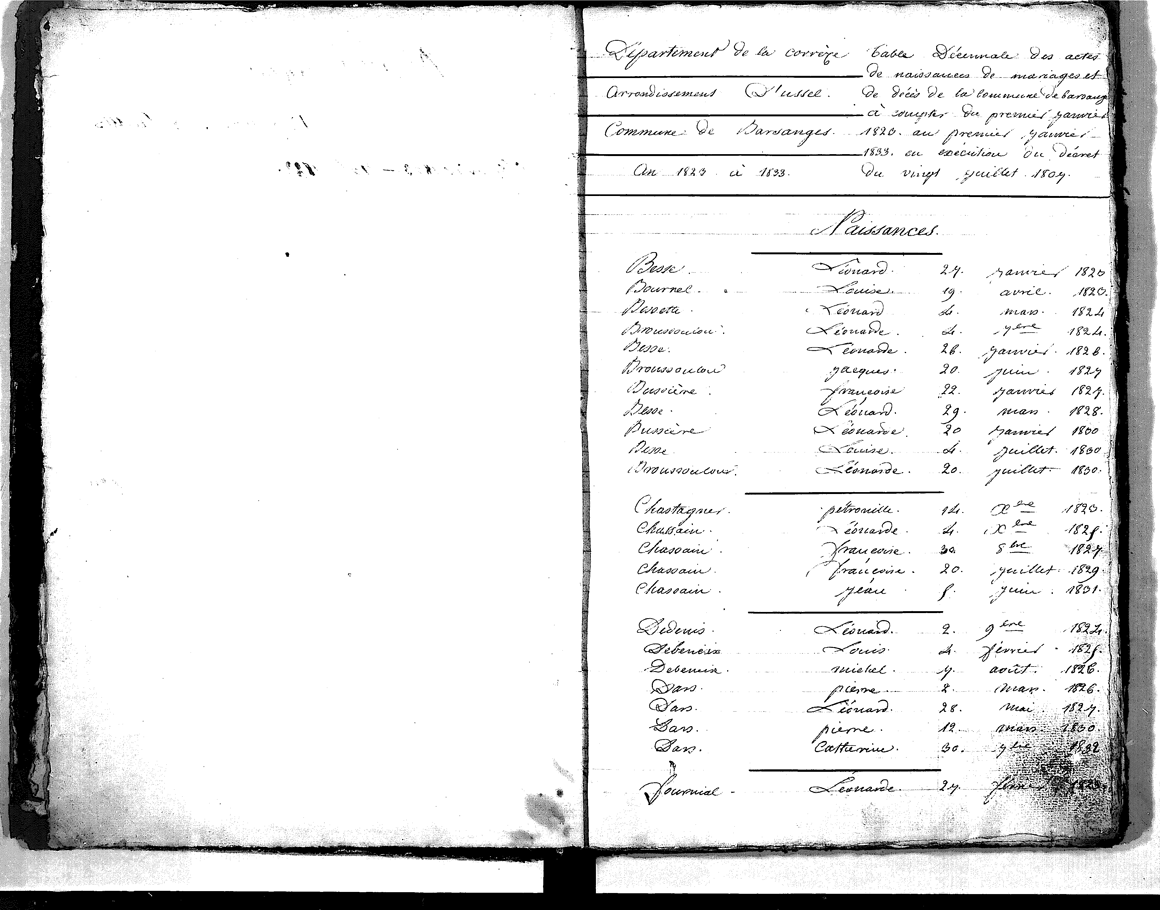 Département de la corrèze
Arrondissement D'ussel.
Commune de Barsanges.
An 1823 à 1833.
Table Décennale des actes
de naissances de mariages et
de décès de la commune de barsanges
à compter du premier janvier
1823. au premier janvier
1833. en exécution du décret
du vingt juillet 1807.
Naissances.
Besse Léonard. 27. janvier 1823
Bournel. Louise. 19. avril. 1823.
Bessette Léonard 4. mars. 1824
Broussouloux. Léonarde. 4. 7bre 1824.
Besse. Léonarde. 26. janvier. 1826.
Broussouloux jacques. 20. juin. 1827
Bussière. francoise 22. janvier 1827.
Besse. Léonard. 29. mars. 1828.
Bussière Léonarde. 20 janvier 1830
Besse Louise. 4. juillet. 1830
Broussouloux. Léonarde. 20. juillet. 1830.
Chastagner. pétronille. 14. Xbre 1823.
Chassain. Léonarde 4. Xbre 1825.
Chassain. francoise. 30. 8bre 1827.
Chassain. francoise. 20. juillet. 1829.
Chassain. jean 5. juin. 1831.
Dedenis. Léonard. 2. 9bre 1824.
Debeneix Louis. 4. février. 1825.
Debeneix. michel. 7. août. 1826.
Dars. pierre. 2. mars. 1826.
Dars. Léonard. 28. mai. 1827.
Dars. pierre. 12. mars. 1830.
Dars. Catherine. 30. 7bre 1832
Fournial. Léonarde. 27.